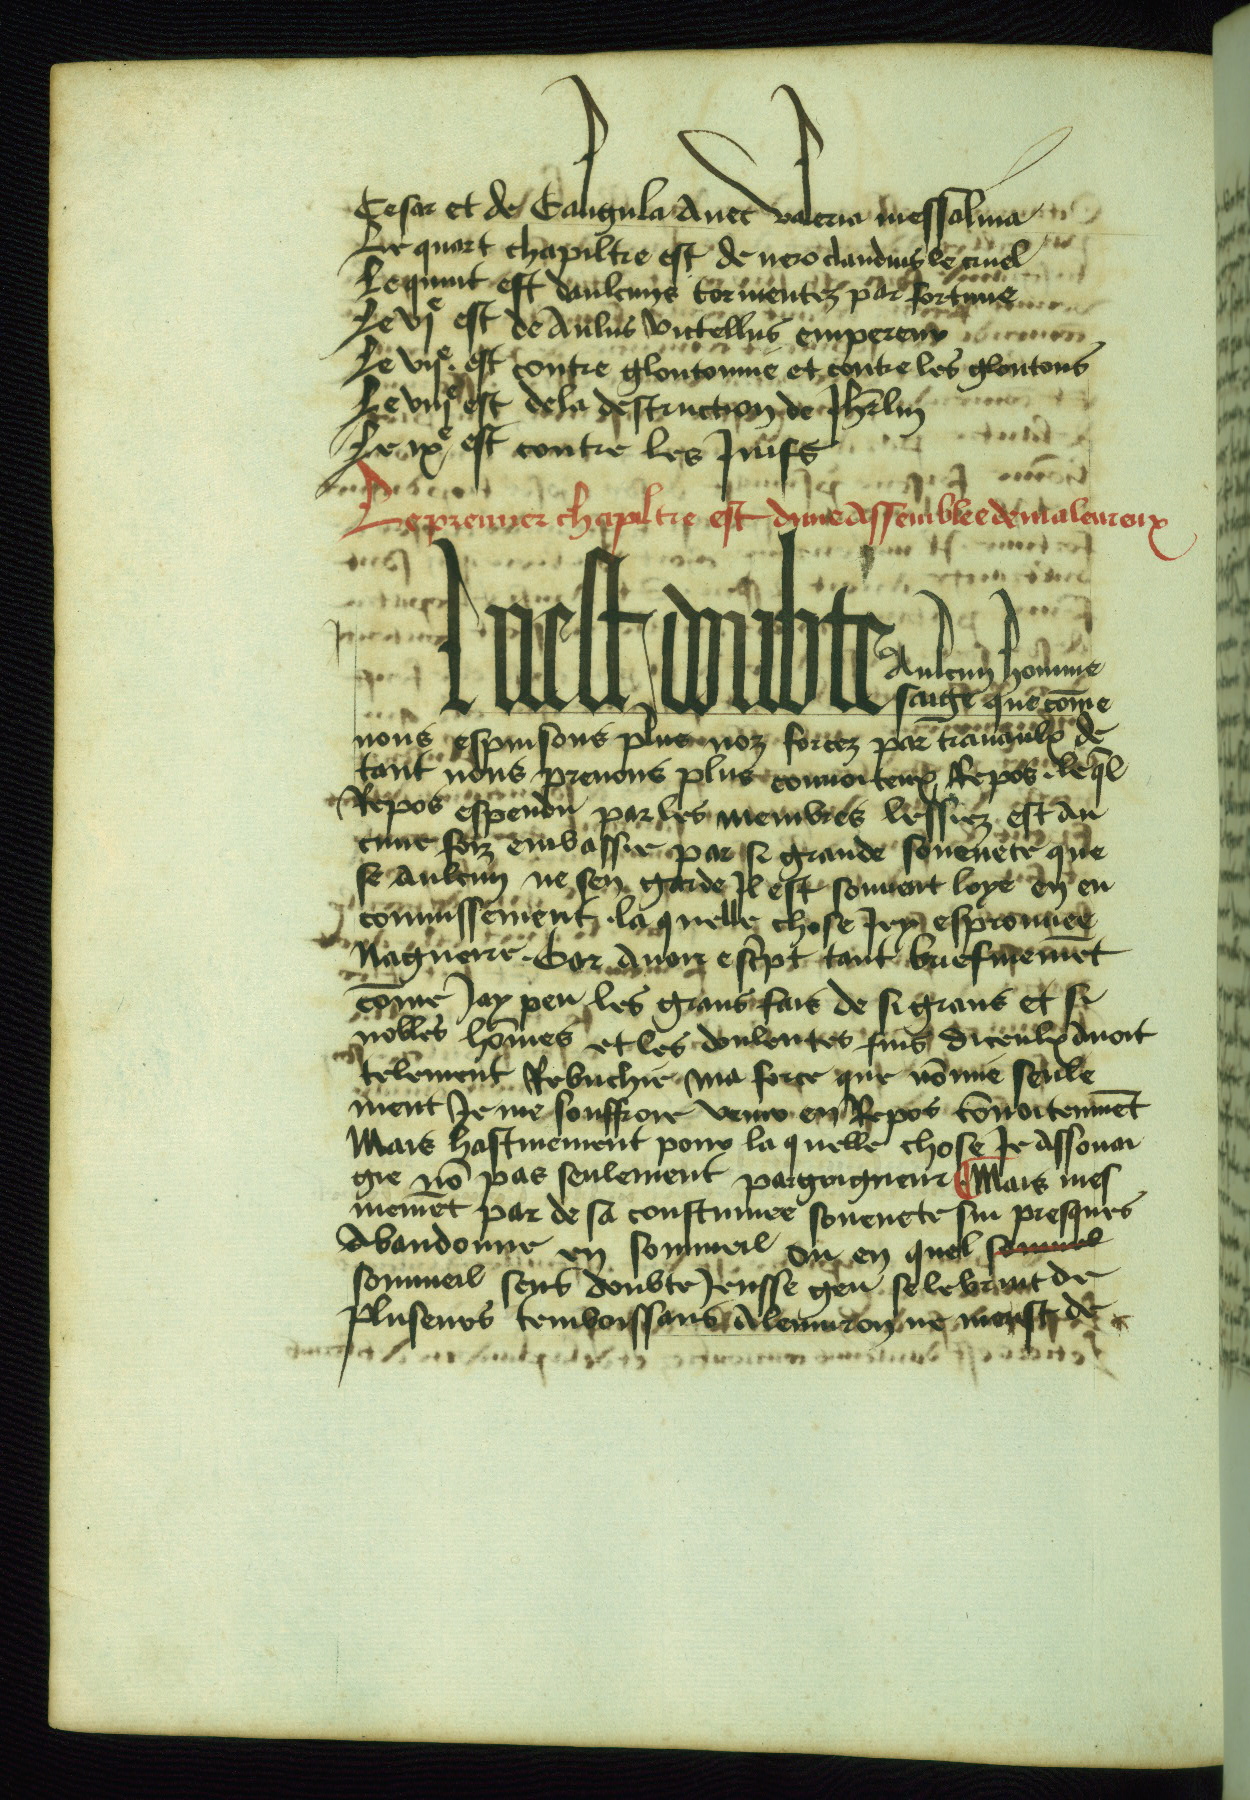 Cesar et de Caligula Avec valeria messalina
Le quart chapiltre est de nero claudius le cruel
Le quint est daulcuns tormentez par fortune
Le vje est de Aulus vitellus empereur
Le vije est contre gloutonnie et contre les gloutons
Le viije est dela destruction de Jhrlm
Le ixe est contre les Juifs
Le premier chapiltre est dune Assemblee de maleureux
Il nest doubte Aulcun homme
saige que cõme
nous espuisons plus noz forcez par travaulx de
tant nous prenons plus convoiteux Repos leql
Repos espendu par les membres lessiez est au
cune foiz embassie par si grande souevete que
se Aulcun ne sen garde Jl est souvent loye en en
connissement la quelle chose Jey esprouvee
Naguerre Car Avoir escript tant briefmemẽt
cõme Jay peu les grans fais de si grans et si
nobles hõmes et les doulentes fins diceulx avoit
telement Rebuchie ma force que nõmie seule
ment Je me souffroie venir en Repos cõvoiteuemẽt
Mais hastivement pour la quelle chose Je Assouai
gie nõ pas seulement par goigneur Mais mes
memẽt par de sa coustumee souevete sui presques
Abandonne en sommeil ou en quel sommeil
sommeil sens doubte Jeusse geu se le bruit de
pluseurs tomboissans Alenviron ne meust de